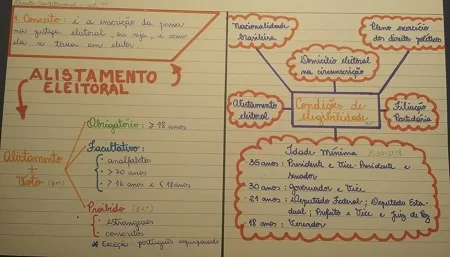 1. Conceito: é a inscrição da pessoa
na justiça eleitoral, ou seja, é como
ela se torna um eleitor.
ALISTAMENTO
ELEITORAL
Alistamento
+
Voto
Obrigatório: ≥ 18 anos
Facultativo:
• analfabetos
• > 70 anos
• > 16 anos e < 18 anos
Proibido
• estrangeiros
• conscritos
* Exceção português equiparado
Nacionalidade
brasileira
Pleno exercício
dos direitos políticos
Domicílio eleitoral
na circunscrição
Alistamento
eleitoral
Condições de
elegibilidade
Filiação
Partidária
Idade Mínima
35 anos: Presidente e Vice-Presidente e
senador
30 anos: governador e Vice
21 anos: Deputado Federal; Deputado Esta-
dual; Prefeito e Vice e Juiz de Paz
18 anos: Vereador